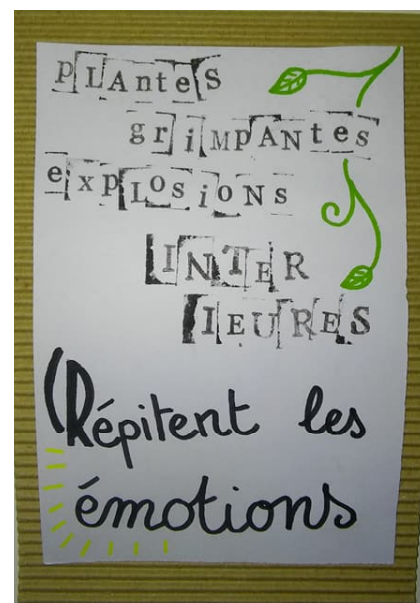 pLAnteS
griMPANtes
expLOSiONS
INTER
IEURES
(Répitent les
émotions